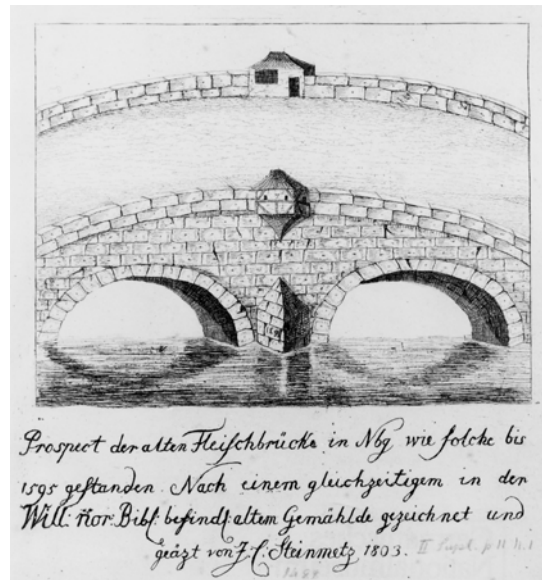 Prospect der alten Fleischbrücke in Nbg wie solche bis
1595 gestanden. Nach einem gleichzeitigem in der
Will: Nor: Bibl: befindl: altem Gemählde gezeichnet und
geäzt von J. C. Steinmetz 1803.